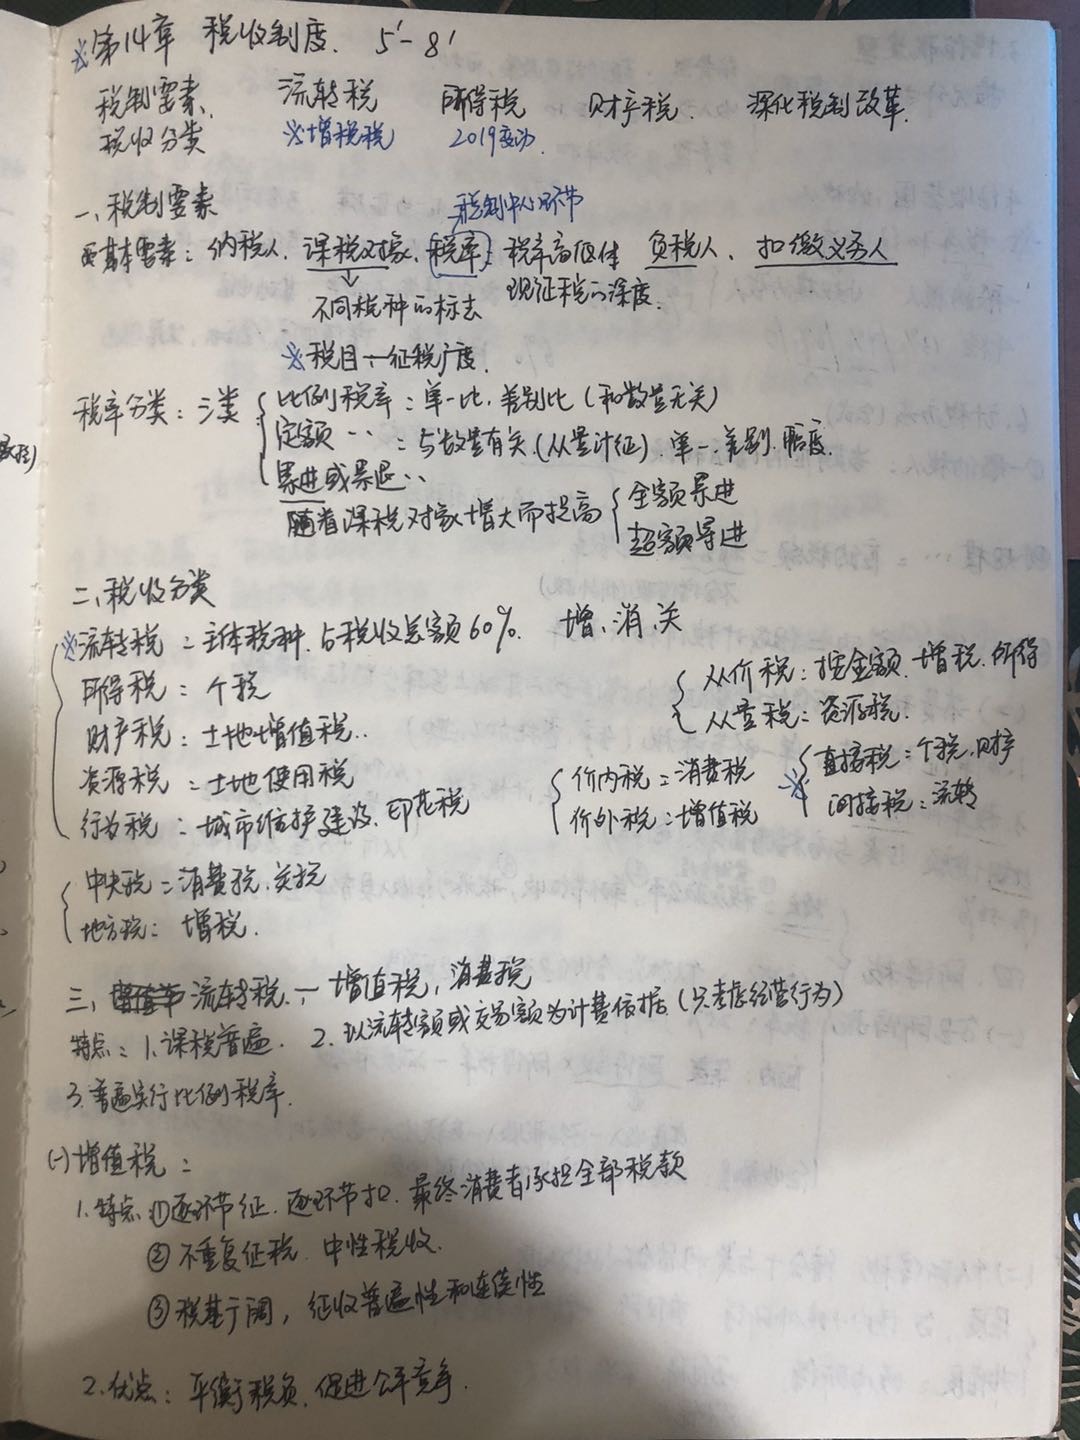 ※第14章 税收制度. 5'-8'
税制要素. 流转税 所得税 财产税. 深化税制改革.
税收分类 ※增税税 2019变动.
一、税制要素 税制中心环节
基本要素: 纳税人. 课税对象. 税率: 税率高低体 负税人、扣缴义务人
不同税种的标志 现征税的深度.
※税目—征税广度.
税率分类: 三类 比例税率: 单一比. 差别比 (和数量无关)
定额··: 与数量有关.(从量计征). 单一. 差别. 幅度.
累进或累退··
随着课税对象增大而提高 全额累进
超额累进
二、税收分类
※流转税: 主体税种. 占税收总额60%. 增、消、关
所得税: 个税 从价税: 按金额. 增税. 所得
财产税: 土地增值税.. 从量税: 资源税.
资源税: 土地使用税 价内税: 消费税 ※ 直接税: 个税. 财产
行为税: 城市维护建设. 印花税 价外税: 增值税 间接税: 流转
中央税: 消费税. 关税
地方税: 增税.
三、流转税.— 增值税, 消费税
特点: 1.课税普遍. 2.以流转额或交易额为计费依据.(只考虑经营行为)
3.普遍实行比例税率.
(一)增值税:
1.特点 ①逐环节征. 逐环节扣. 最终消费者承担全部税款
②不重复征税. 中性税收.
③税基广阔, 征收普遍性和连续性
2.优点: 平衡税负. 促进公平竞争.